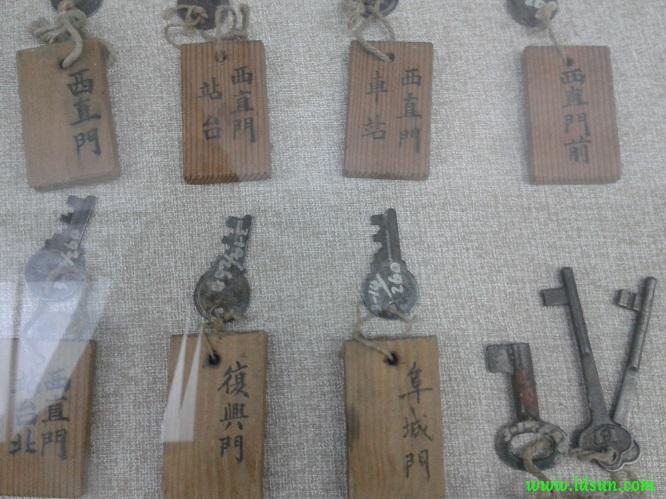 西直門
西直門
站台
西直門
車站
西直門前
西直門
站台北
復興門
阜城門
260
www.ldsun.com